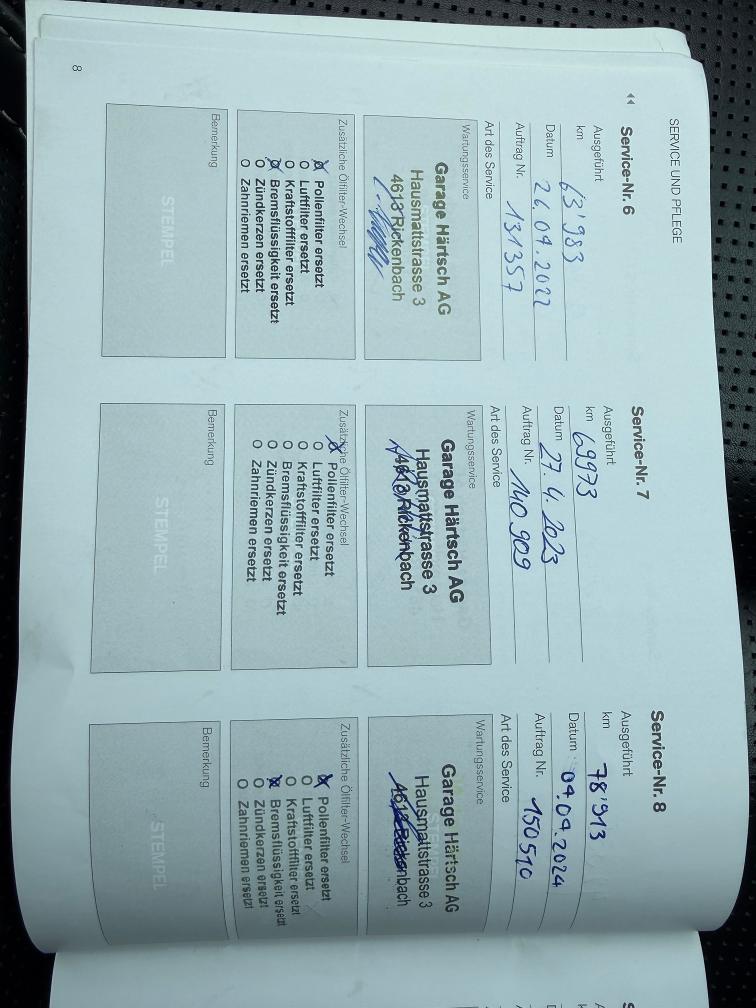 SERVICE UND PFLEGE
Service-Nr. 6
Ausgeführt
km 63'983
Datum 26.04.2022
Auftrag Nr. 131357
Art des Service
Wartungsservice
Garage Härtsch AG
Hausmattstrasse 3
4613 Rickenbach
Zusätzliche Ölfilter-Wechsel
Pollenfilter ersetzt
Luftfilter ersetzt
Kraftstofffilter ersetzt
Bremsflüssigkeit ersetzt
Zündkerzen ersetzt
Zahnriemen ersetzt
Bemerkung
STEMPEL
Service-Nr. 7
Ausgeführt
km 69973
Datum 27.4.2023
Auftrag Nr. 140909
Art des Service
Wartungsservice
Garage Härtsch AG
Hausmattstrasse 3
4613 Rickenbach
Zusätzliche Ölfilter-Wechsel
Pollenfilter ersetzt
Luftfilter ersetzt
Kraftstofffilter ersetzt
Bremsflüssigkeit ersetzt
Zündkerzen ersetzt
Zahnriemen ersetzt
Bemerkung
STEMPEL
Service-Nr. 8
Ausgeführt
km 78'913
Datum 04.04.2024
Auftrag Nr. 150510
Art des Service
Wartungsservice
Garage Härtsch AG
Hausmattstrasse 3
4613 Rickenbach
Zusätzliche Ölfilter-Wechsel
Pollenfilter ersetzt
Luftfilter ersetzt
Kraftstofffilter ersetzt
Bremsflüssigkeit ersetzt
Zündkerzen ersetzt
Zahnriemen ersetzt
Bemerkung
STEMPEL
8